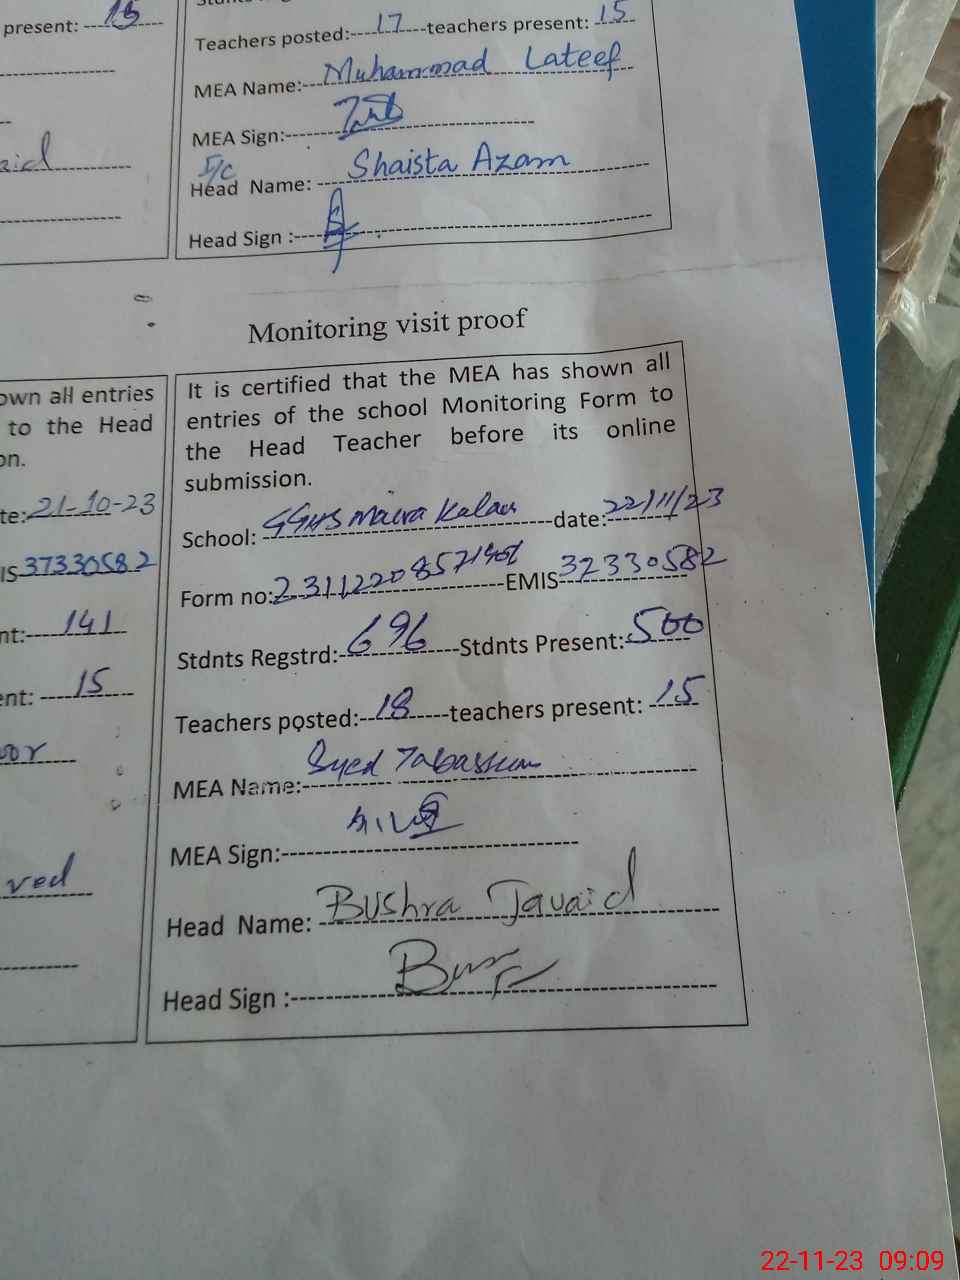 present: 15
Teachers posted: 17 teachers present: 15
MEA Name: Muhammad Lateef
MEA Sign:
I/C
Head Name: Shaista Azam
Head Sign :
Monitoring visit proof
own all entries
to the Head
on.
te: 21-10-23
IS 37330582
nt: 141
ent: 15
ved
It is certified that the MEA has shown all
entries of the school Monitoring Form to
the Head Teacher before its online
submission.
School: GGHS Maira Kalan date: 22/11/23
Form no: EMIS 37330582
Stdnts Regstrd: 696 Stdnts Present: 500
Teachers posted: 18 teachers present: 15
MEA Name: Syed Tabassum
MEA Sign:
Head Name: Bushra Javaid
Head Sign :
22-11-23 09:09